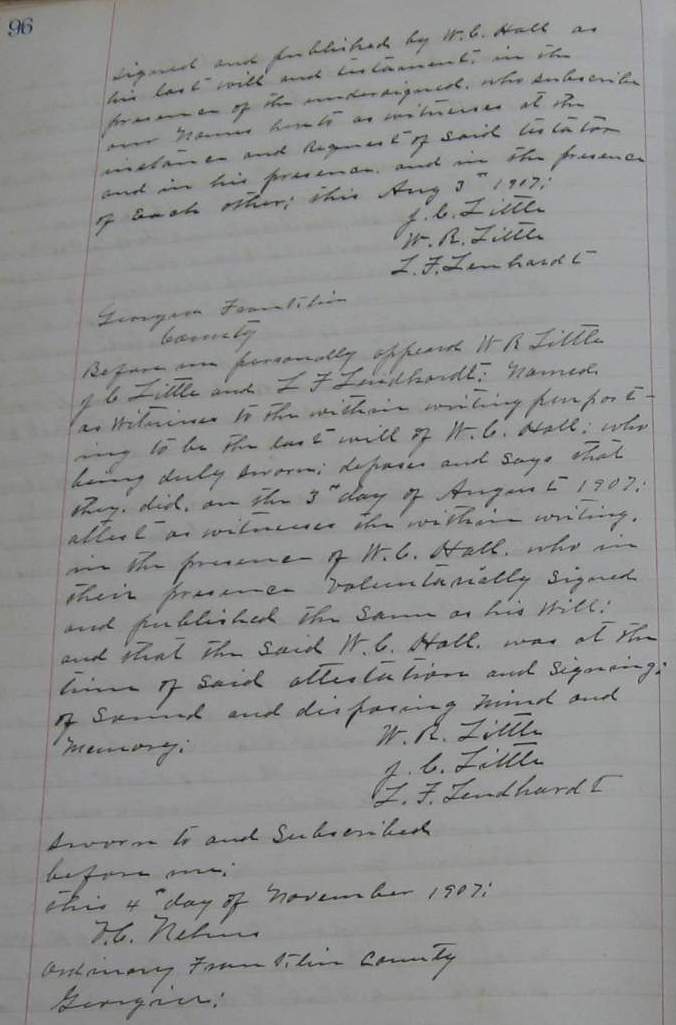 96
signed and published by W. C. Hall as
his last will and testament, in the
presence of the undersigned, who subscribe
our names hereto as witnesses at the
instance and Request of said testator
and in his presence. and in the presence
of Each other; this Aug 3rd 1907;
J. C. Little
W. R. Little
L. F. Lenhardt
Georgia Franklin
County
Before me personally appeard W R Little
J C Little and L F Lendhardt; Named
as Witnesses to the within writing purport-
ing to be the last will of W. C. Hall; who
being duly sworn; deposes and says that
they. did. on the 3rd day of August 1907;
attest as witnesses the within writing.
in the presence of W. C. Hall. who in
their presence Voluntarially signed
and published the same as his Will;
and that the said W. C. Hall. was at the
time of said attestation and signing;
of sound and disposing mind and
memory;
W. R. Little
J. C. Little
L. F. Lendhardt
Sworn to and Subscribed
before me;
this 4th day of November 1907;
Nelms
Ordinary Franklin County
Georgia;